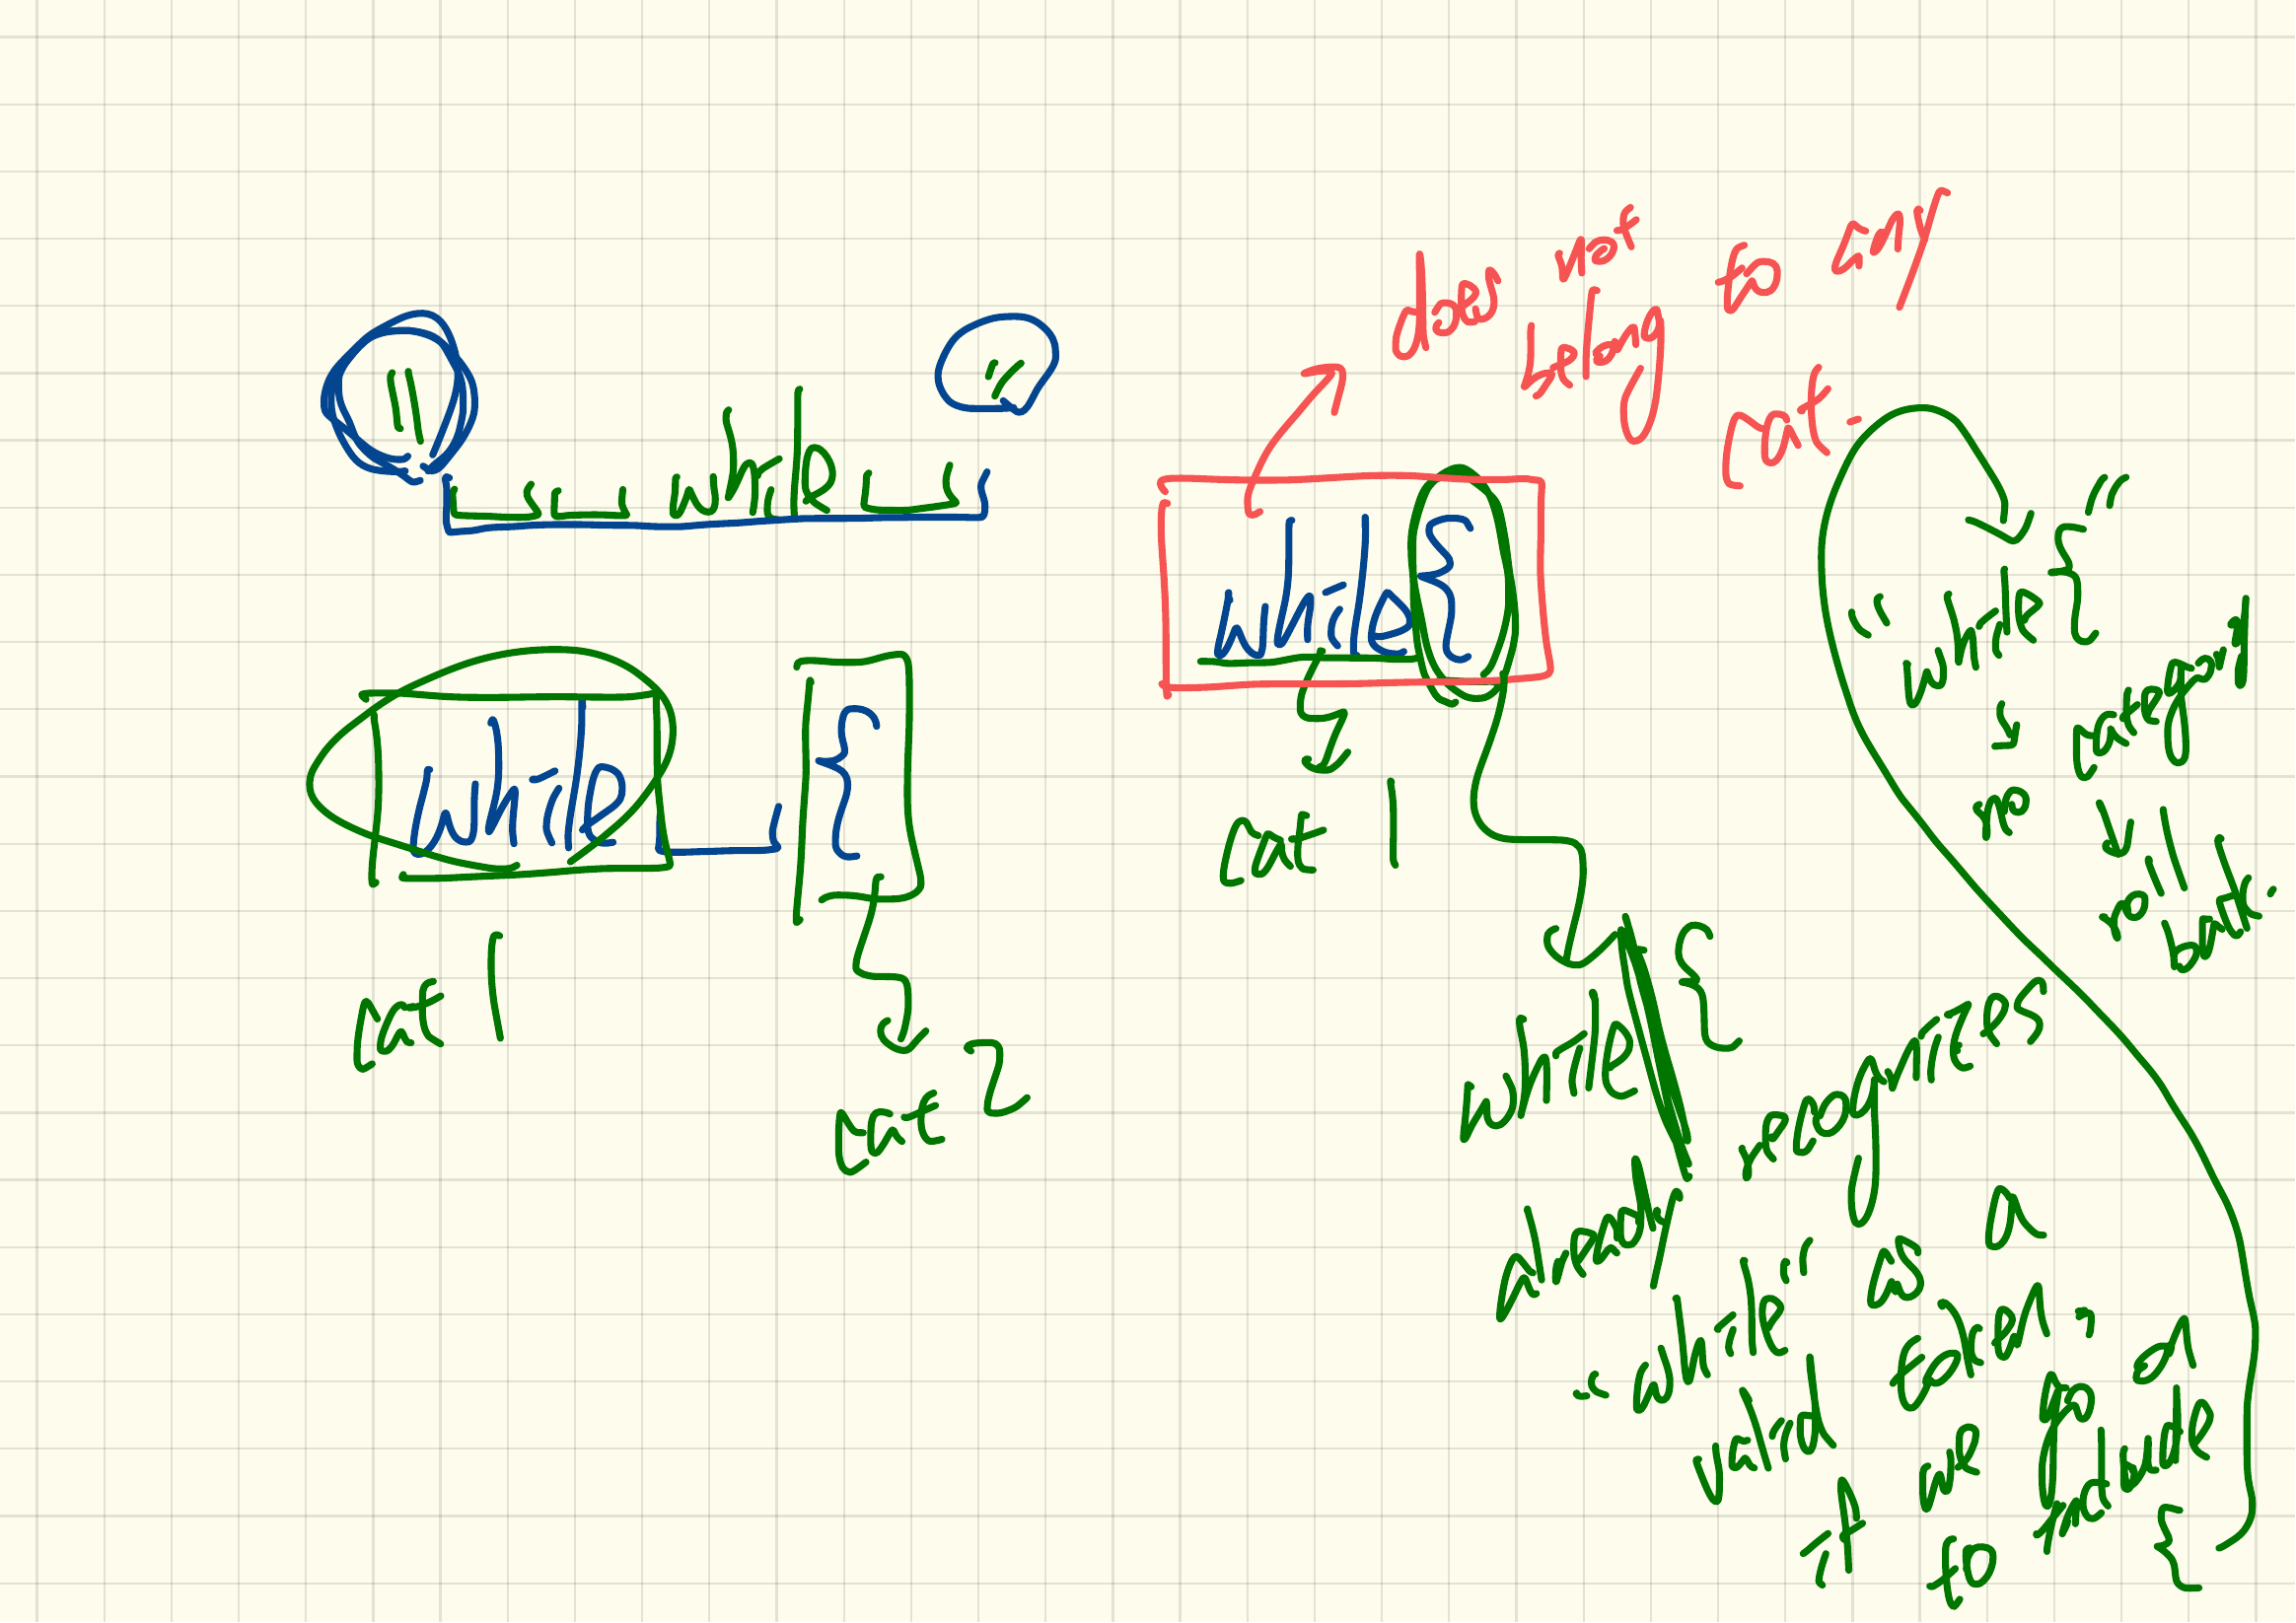 " while "
while {
cat 1
cat 2
while {
does not
belong to any
cat.
cat 1
while {
already recognizes
"while" as a
valid token,
if we go on
to include
{
"while {"
is
no category!
roll
back.